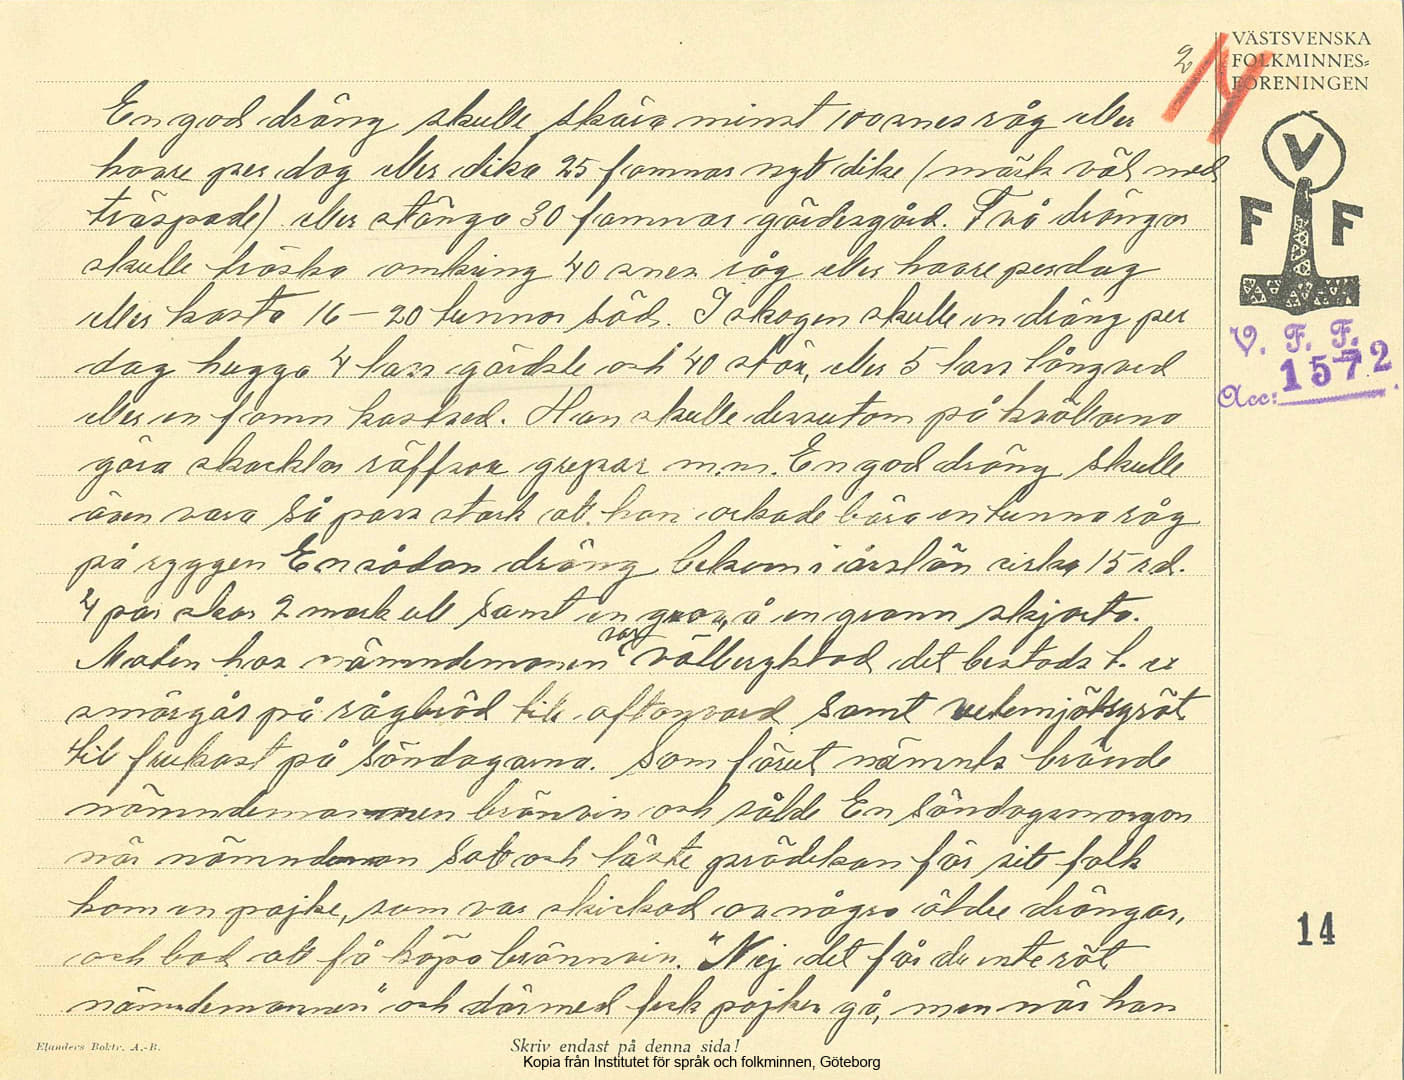 2
VÄSTSVENSKA
FOLKMINNES-
FÖRENINGEN
V
F F
V. F. F.
Acc: 1572
En god dräng skulle skära minst 100 snes råg eller
havre per dag eller dika 25 famnar nytt dike (märk väl med
träspade) eller stänga 30 famnar gärdesgård. Två drängar
skulle tröska omkring 40 snes råg eller havre per dag
eller kasta 16 – 20 tunnor säd. I skogen skulle en dräng per
dag hugga 4 lass gärdsle och 40 stör, eller 5 lass långved
eller en famn kastved. Han skulle dessutom på kvällarna
göra skacklor räffsor grepar m.m. En god dräng skulle
även vara så pass stark att han orkade bära en tunna råg
på ryggen En sådan dräng bekom i årslön cirka 15 rd.
4 par skor 2 mark ull samt en grov, å en grann skjorta.
Maten hos nämndemannen var välbergstad det bestods t. ex
smörgås på rågbröd till aftonvard samt vetemjölsgröt
till frukost på söndagarna. Som förut nämnts brände
nämndemannen brännvin och sålde En söndagsmorgon
när nämndeman satt och läste predikan för sitt folk
kom en pojke, som var skickad av några äldre drängar,
och bad att få köpa brännvin. "Nej det får du inte röt
nämndemannen" och därmed fick pojken gå, men när han
14
Elanders Boktr. A.-B.
Skriv endast på denna sida!
Kopia från Institutet för språk och folkminnen, Göteborg